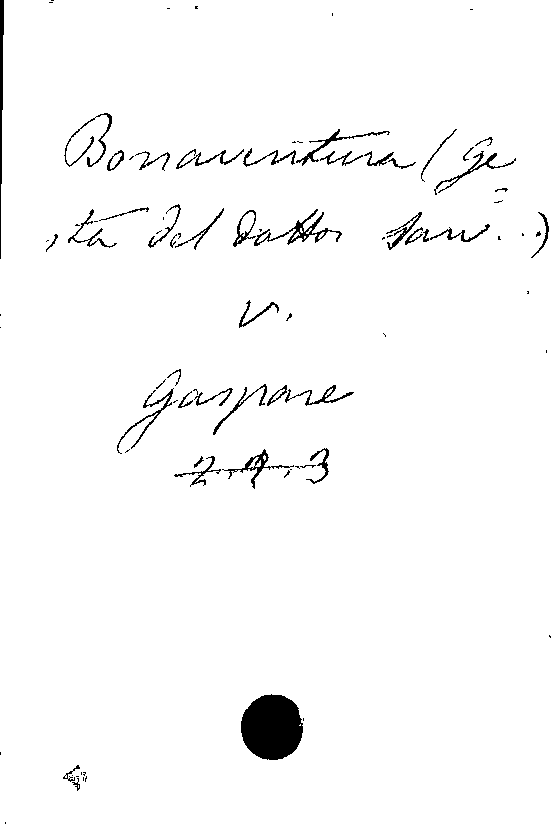 Bonaventura (Ge=
sta del dottor San...)
v.
Gaspare
2.9.3